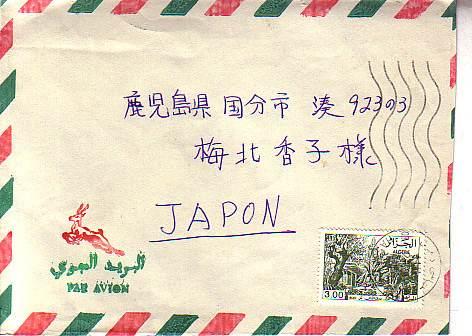 鹿児島県 国分市 湊 92303
梅北香子様
JAPON
البريد الجوي
PAR AVION
الجزائر
3.00